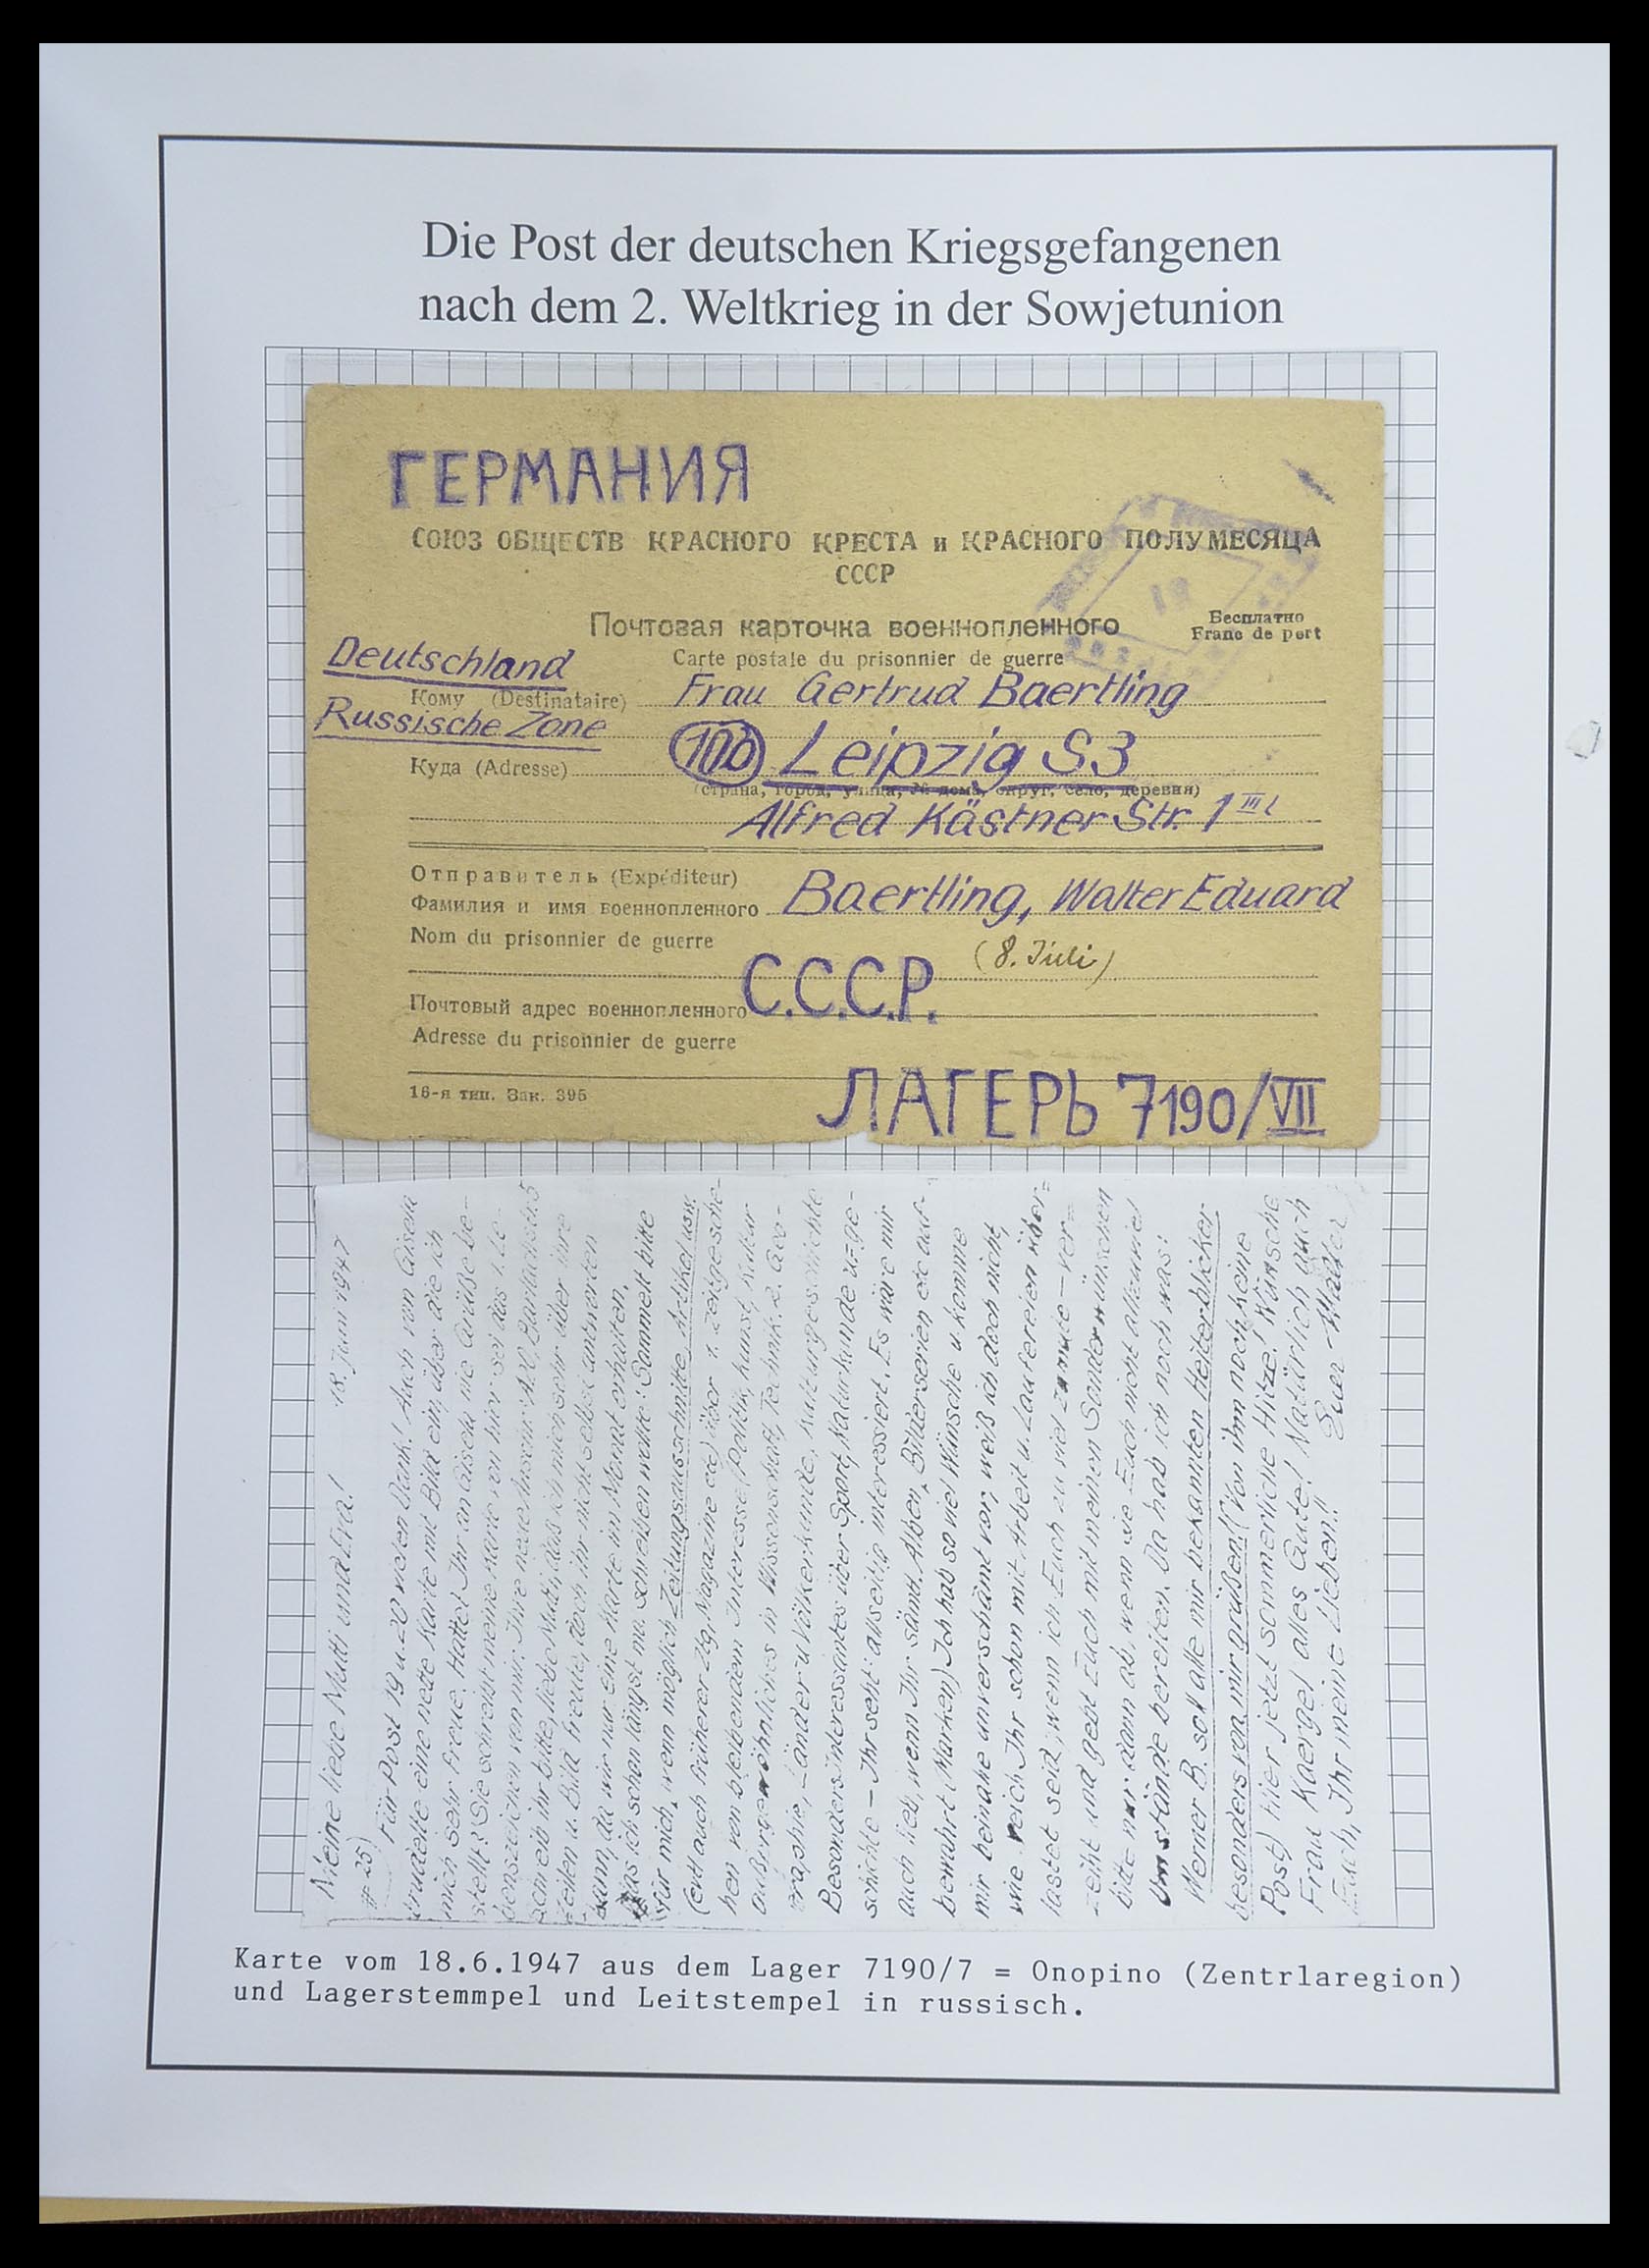 Die Post der deutschen Kriegsgefangenen
nach dem 2. Weltkrieg in der Sowjetunion
ГЕРМАНИЯ
СОЮЗ ОБЩЕСТВ КРАСНОГО КРЕСТА и КРАСНОГО ПОЛУМЕСЯЦА
СССР
Почтовая карточка военнопленного
Бесплатно
Franc de port
Carte postale du prisonnier de guerre
Deutschland
Кому (Destinataire) Frau Gertrud Baertling
Russische Zone
Куда (Adresse) 10b Leipzig S3
(страна, город, улица, № дома, округ, село, деревня)
Alfred Kästner Str. 1 III l
Отправитель (Expéditeur)
Фамилия и имя военнопленного Baertling, Walter Eduard
Nom du prisonnier de guerre
(8. Juli)
Почтовый адрес военнопленного С.С.С.Р.
Adresse du prisonnier de guerre
16-я тип. Зак. 395
ЛАГЕРЬ 7190/VII
Meine liebe Mutti und Eva! 18. Juni 1947
#25)
Für Post 19 u. 20 vielen Dank! Auch von Gisela
trudelte eine nette Karte mit Bild ein, über die ich
mich sehr freue. Hattet Ihr an Gisela nie Grüße be-
stellt? Sie schreibt meine Karte von hier sei das 1. Le-
benszeichen von mir. Ihre neue Anschr.:
Gebt ihr bitte, liebe Mutti, daß ich mich sehr über ihre
Zeilen u. Bild freute, doch ihr nicht selbst antworten
kann, da wir nur eine Karte im Monat erhalten.
Was ich schon längst mal schreiben wollte: Sammelt bitte
für mich, wenn möglich Zeitungsausschnitte, Artikel usw.
(evtl auch früherer Ztg, Magazine etc) über 1. Zeitgesche-
hen von bleibendem Interesse (Politik, Kunst, Kultur
außergewöhnliches in Wissenschaft, Technik. 2. Geo-
graphie, -Länder u Völkerkunde, Kulturgeschichte
Besonders Interessantes über Sport, Naturkunde u=ge-
schichte – Ihr seht: allseitig interessiert. Es wäre mir
auch lieb, wenn Ihr sämtl. Alben, Bilderserien etc auf-
bewahrt (Marken) Ich hab so viel Wünsche u komme
mir beinahe unverschämt vor, weiß ich doch nicht,
wie reich Ihr schon mit Arbeit u. Laufereien über=
lastet seid; wenn ich Euch zu viel zumute – ver=
zeiht und gebt Euch mit meinen Sonderwünschen
bitte nur dann ab, wenn sie Euch nicht allzuviel
Umstände bereiten. Da hab ich noch was:
Werner B. soll alle mir bekannten Heiterblicker
besonders von mir grüßen! (Von ihm noch keine
Post) Hier jetzt sommerliche Hitze! Wünsche
Frau Kaergel alles Gute! Natürlich auch
Euch, Ihr meine Lieben!! Euer Walter
Karte vom 18.6.1947 aus dem Lager 7190/7 = Onopino (Zentrlaregion)
und Lagerstemmpel und Leitstempel in russisch.